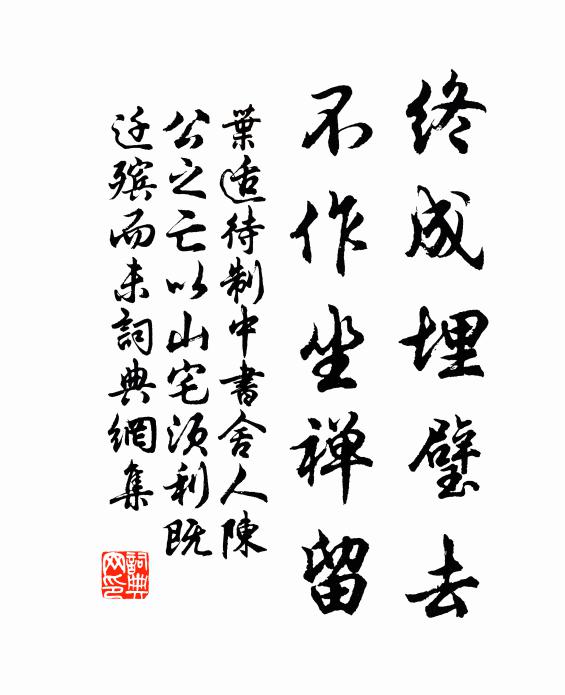 终成埋璧去
不作坐禅留
葉适待制中書舍人陳
公之亡以山宅须利既
迁殡而未詞典網集
詞典
网印